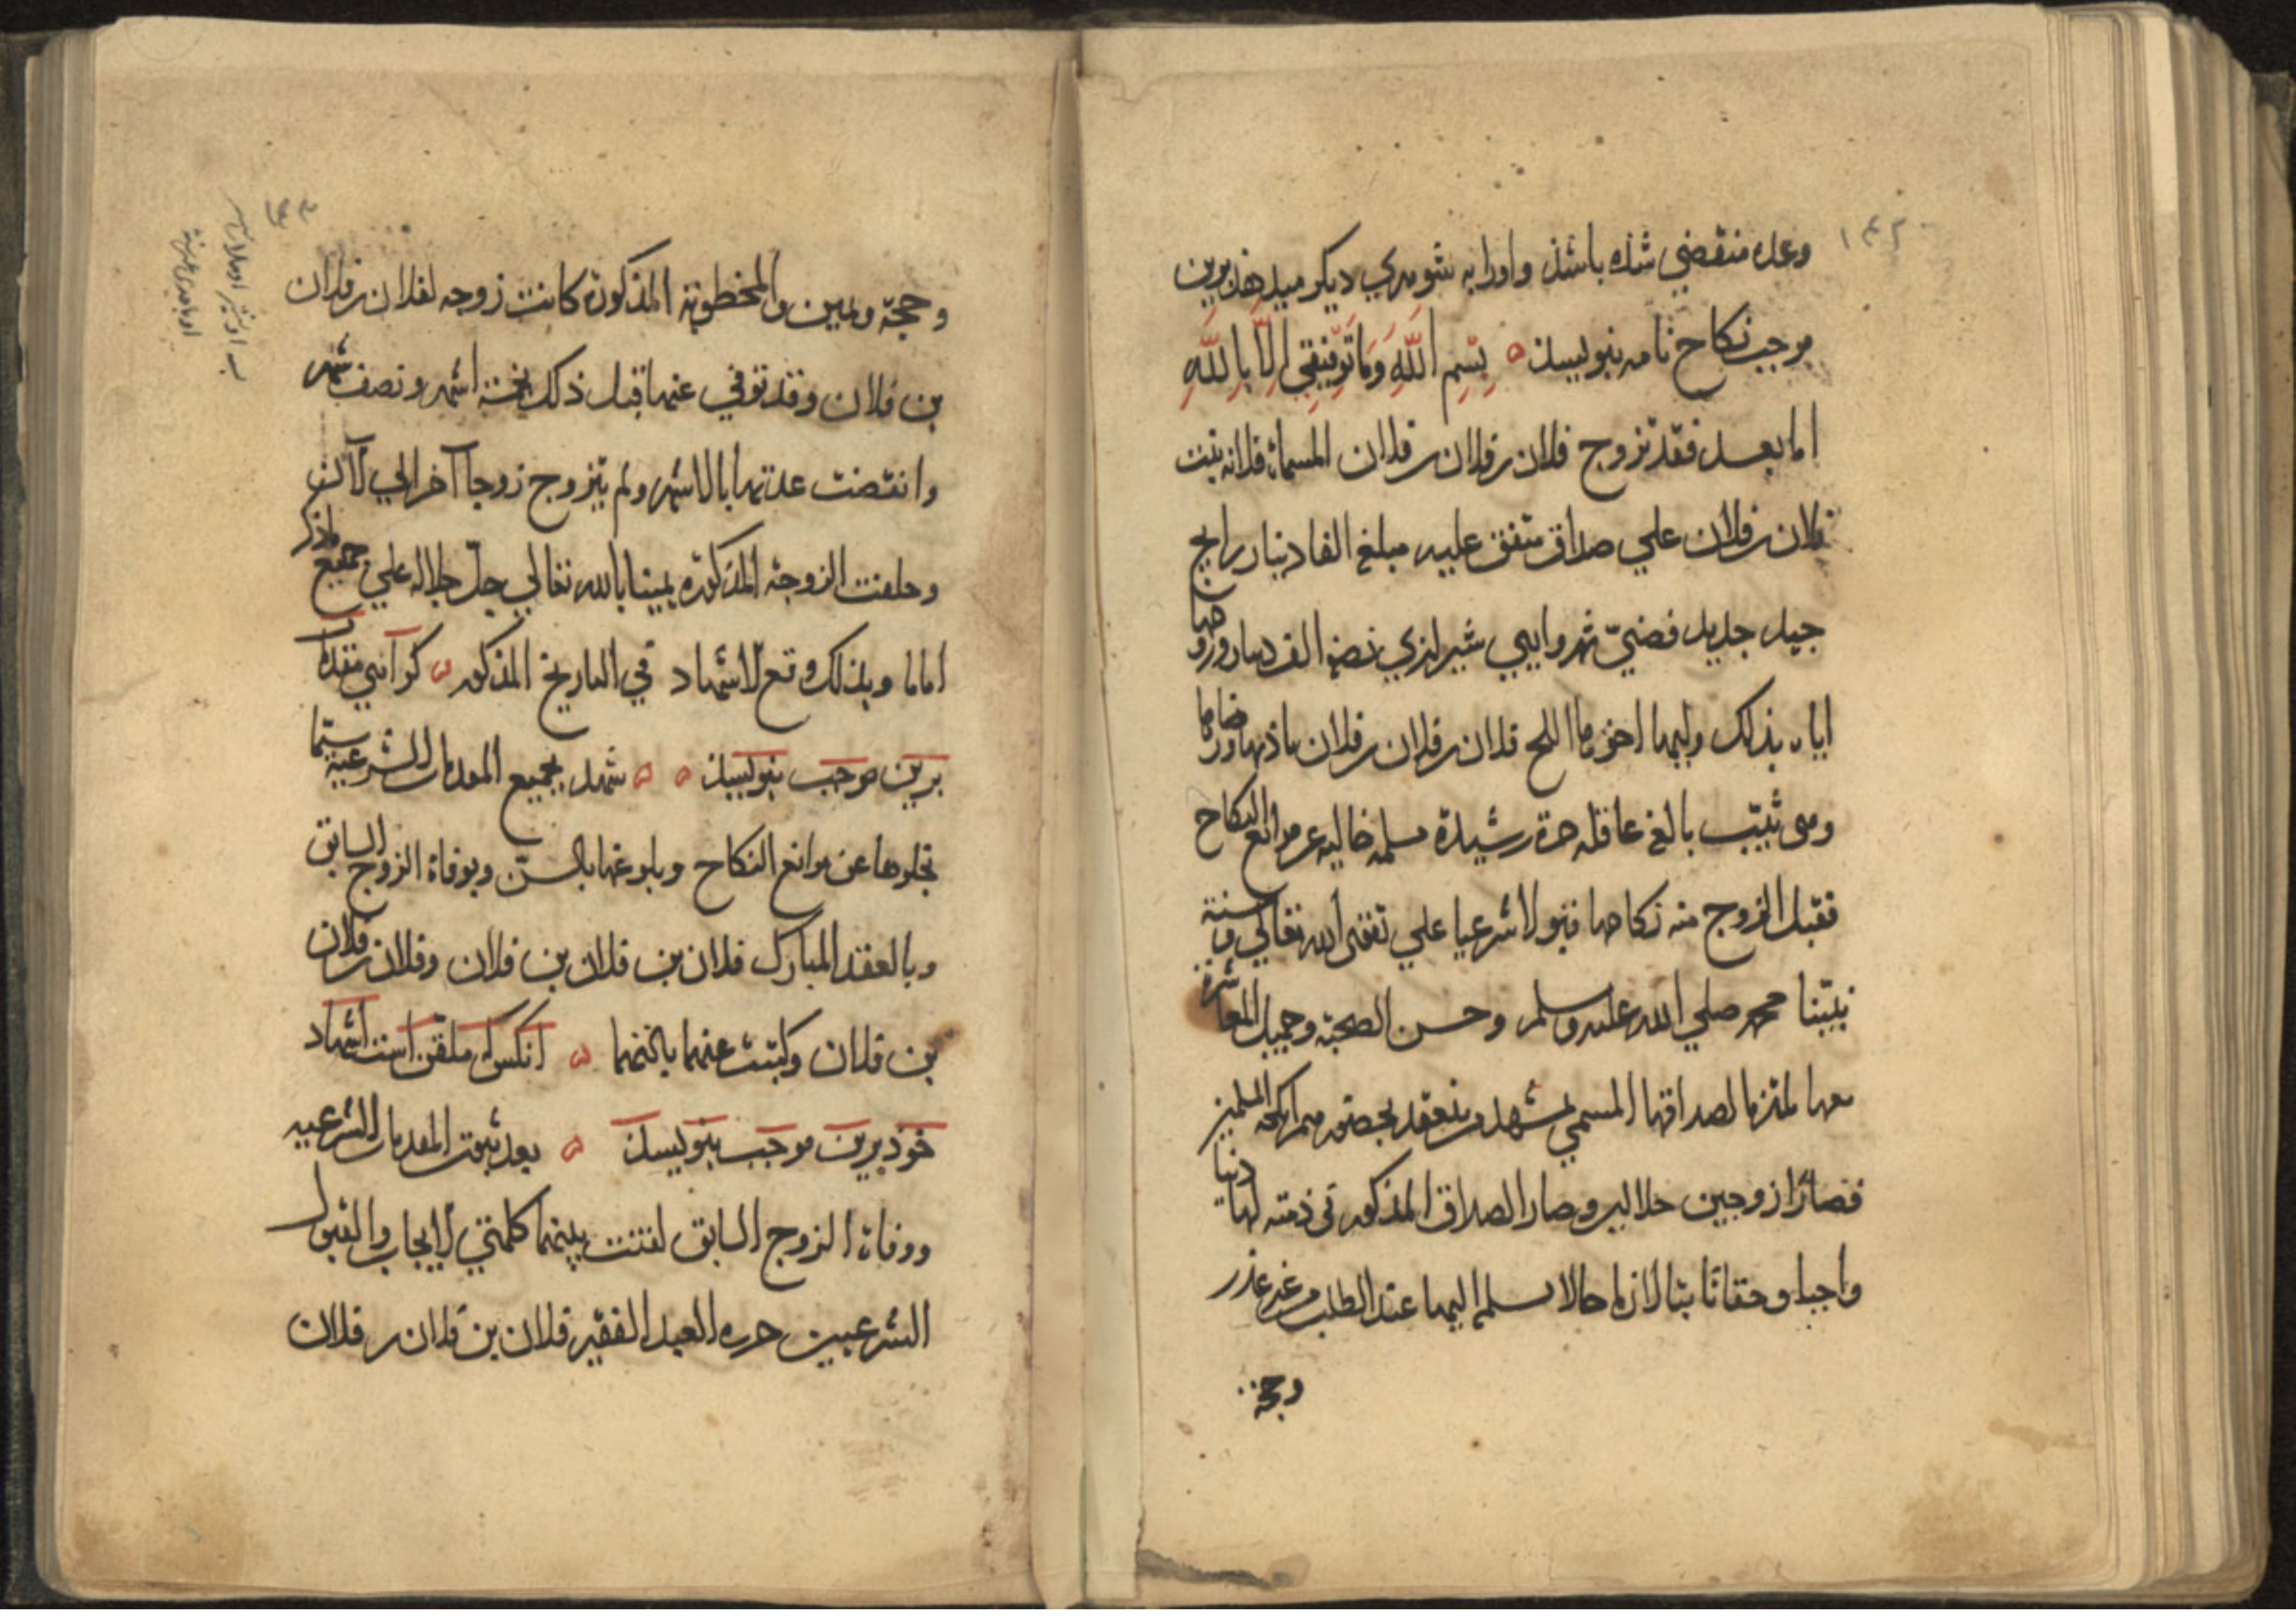 ۱۴۲
وعده منقضي شده باشد واورا به شوهري ديكر ميدهند برين
موجب نكاح نامه بنويسند بسم الله وما توفيقي الا بالله
اما بعد فقد تزوج فلان بن فلان بن فلان المسماة فلانه بنت
فلان بن فلان علي صداق متفق عليه مبلغ الفا دينار رايج
جيد جديد فضيّ شيرازي نصفه الف دينار وزوجها
اياه بذلك وليها فلان بن فلان بن فلان باذنها ورضاها
وهي ثيّب بالغ عاقله حرة رشيدة مسلمه خاليه عن موانع النكاح
فقبل الزوج منه نكاحها قبولا شرعيا علي تقوى الله تعالي وسنة
نبيّنا محمد صلي الله عليه وسلم وحسن الصحبة وجميل المعاشرة
معها ملتزما لصداقها المسمي بحضور من المسلمين
فصارا زوجين حلالين وصار الصداق المذكور في ذمته لها دينا
واجبا وحقا ثابتا لازما حالا يسلم اليها عند الطلب من غير عذر
وحجة
وحجّة ويمين والمخطوبة المذكورة كانت زوجه لفلان بن فلان
بن فلان وقد توفي عنها قبل ذلك بخمسة اشهر ونصف شهر
وانقضت عدتها بالاشهر ولم يتزوج زوجا آخر الي الآن
وحلفت الزوجة المذكورة يمينا بالله تعالي جلّ جلاله علي جميع ما ذكر
اماما وبذلك وقع الاشهاد في التاريخ المذكور كواهي مقدمات
برين موجب بنويسند شهد بجميع المقدمات الشرعية سيّما
بخلوها عن موانع النكاح وبلوغها بالسن وبوفاة الزوج السابق
وبالعقد المبارك فلان بن فلان بن فلان وفلان بن فلان
بن فلان وكتبت عنهما باذنهما انكس كه ملقن است اشهاد
خود برين موجب بنويسد بعد ثبوت المقدمات الشرعيه
ووفاة الزوج السابق لقنت بينهما كلمتي الايجاب والقبول
الشرعيين حرره العبد الفقير فلان بن فلان بن فلان